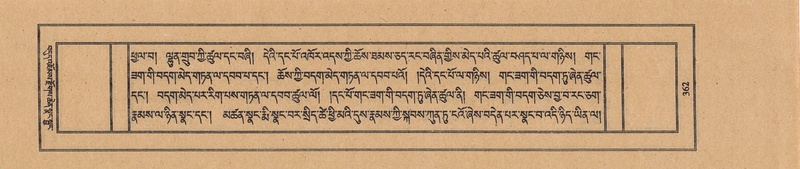 ཕྱལ་བ། ལྷུན་གྲུབ་ཀྱི་ཚུལ་དང་བཞི། དེའི་དང་པོ་འཁོར་འདས་ཀྱི་ཆོས་ཐམས་ཅད་རང་བཞིན་གྱིས་མེད་པའི་ཚུལ་བཤད་པ་ལ་གཉིས། གང་
ཟག་གི་བདག་མེད་གཏན་ལ་དབབ་པ་དང་། ཆོས་ཀྱི་བདག་མེད་གཏན་ལ་དབབ་པའོ། །དེའི་དང་པོ་ལ་གཉིས། གང་ཟག་གི་བདག་ཏུ་ཞེན་ཚུལ་
དང་། བདག་མེད་པར་རིག་པས་གཏན་ལ་དབབ་ཚུལ་ལོ། །དང་པོ་གང་ཟག་གི་བདག་ཏུ་ཞེན་ཚུལ་ནི། གང་ཟག་གི་བདག་ཅེས་བྱ་བ་རང་ཅག་
རྣམས་ལ་ཉིན་སྣང་དང་། མཚན་སྣང་རྨི་སྣང་བར་སྲིད་ཚེ་ཕྱི་མའི་དུས་རྣམས་ཀྱི་སྐབས་ཀུན་ཏུ་ངའོ་ཞེས་བདེན་པར་སྣང་བ་འདི་ཉིད་ཡིན་ལ།
362